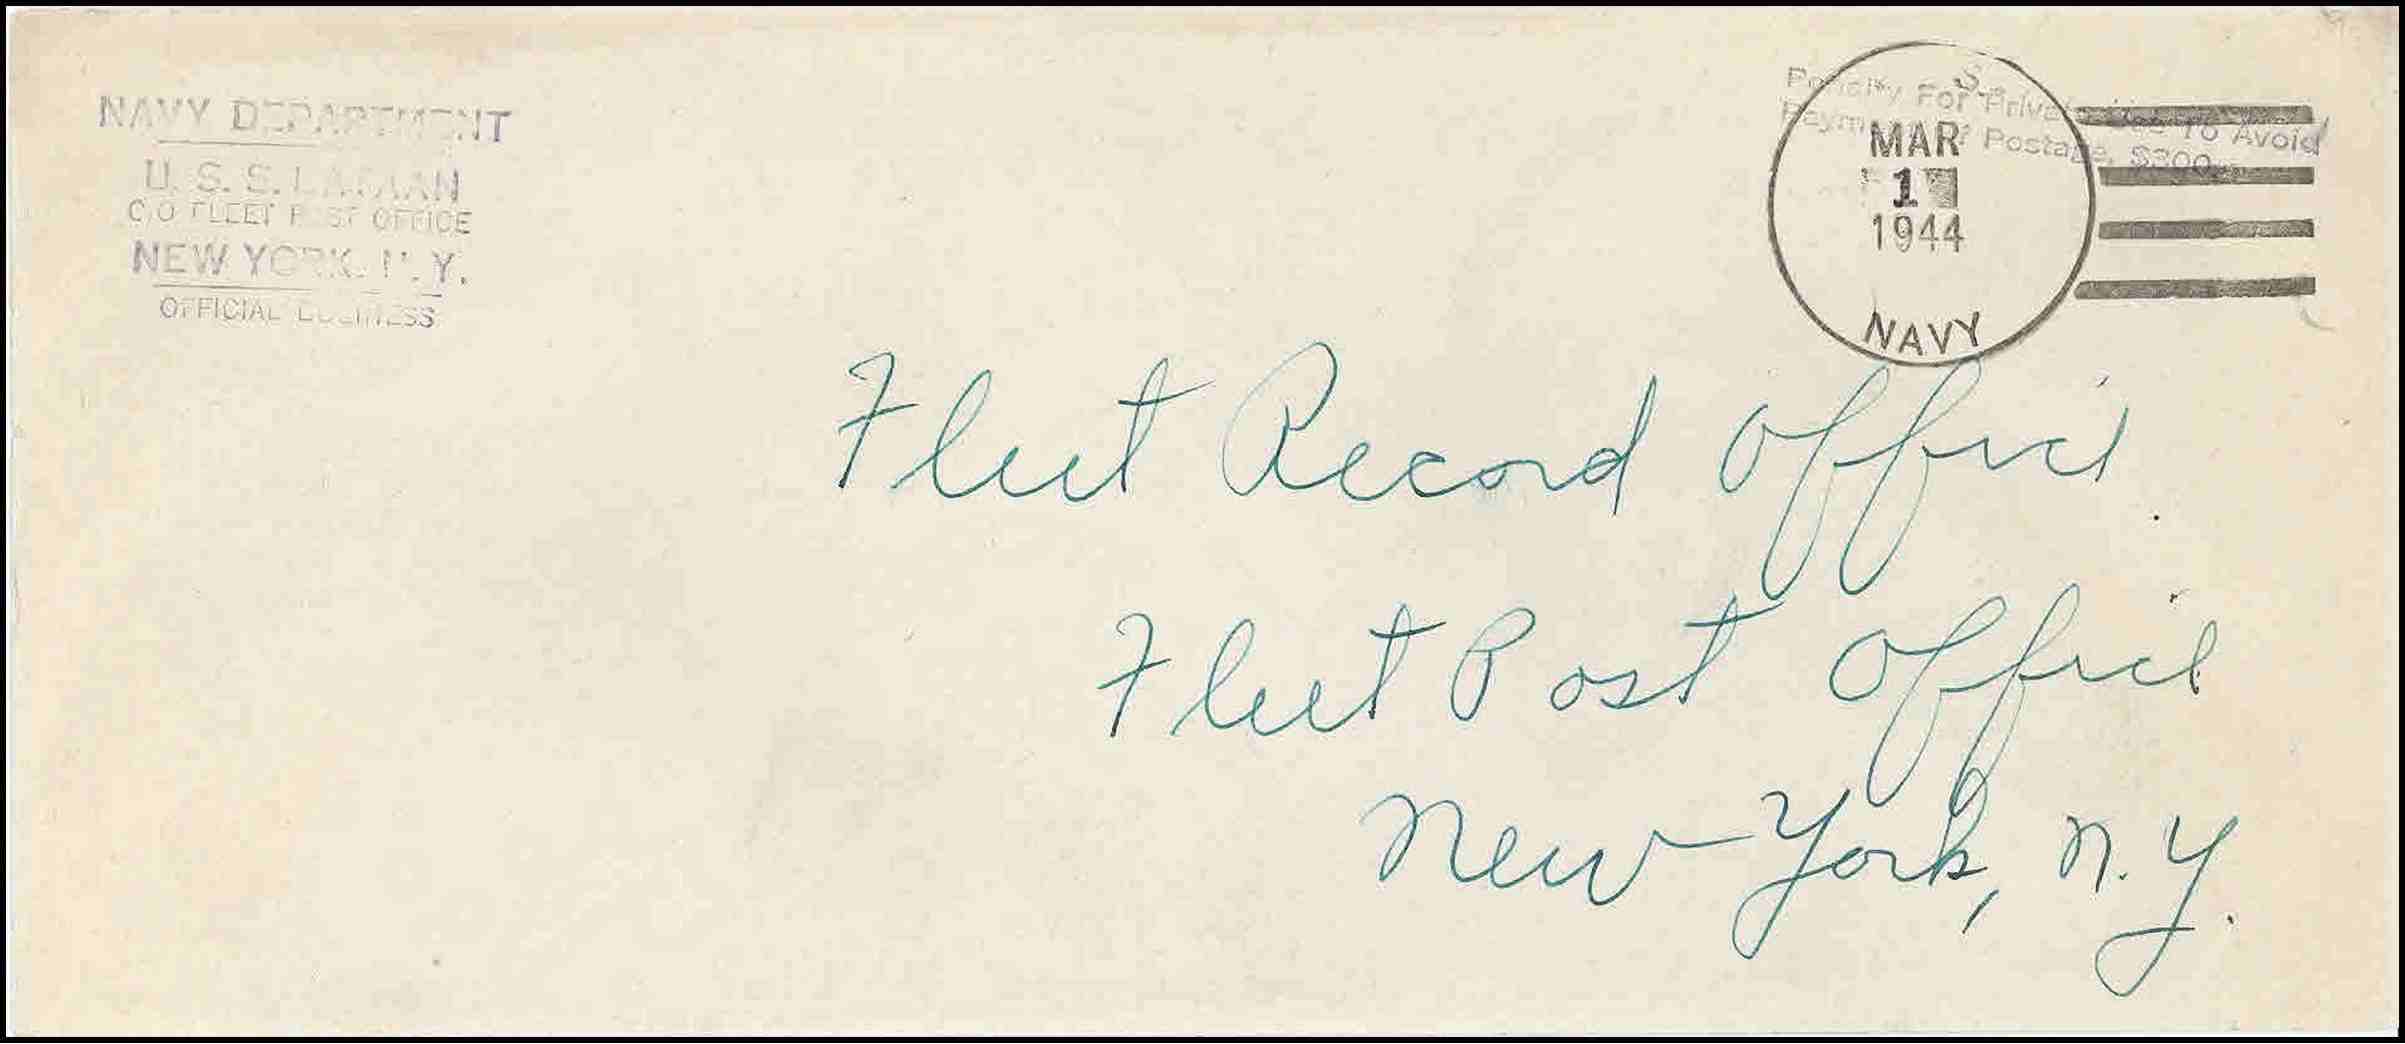 NAVY DEPARTMENT
U. S. S.
C/O FLEET POST OFFICE
NEW YORK, N. Y.
OFFICIAL BUSINESS
Penalty For Private Use To Avoid
Payment of Postage, $300.
S.
MAR
1
1944
NAVY
Fleet Record Office
Fleet Post Office
New York, N.Y.